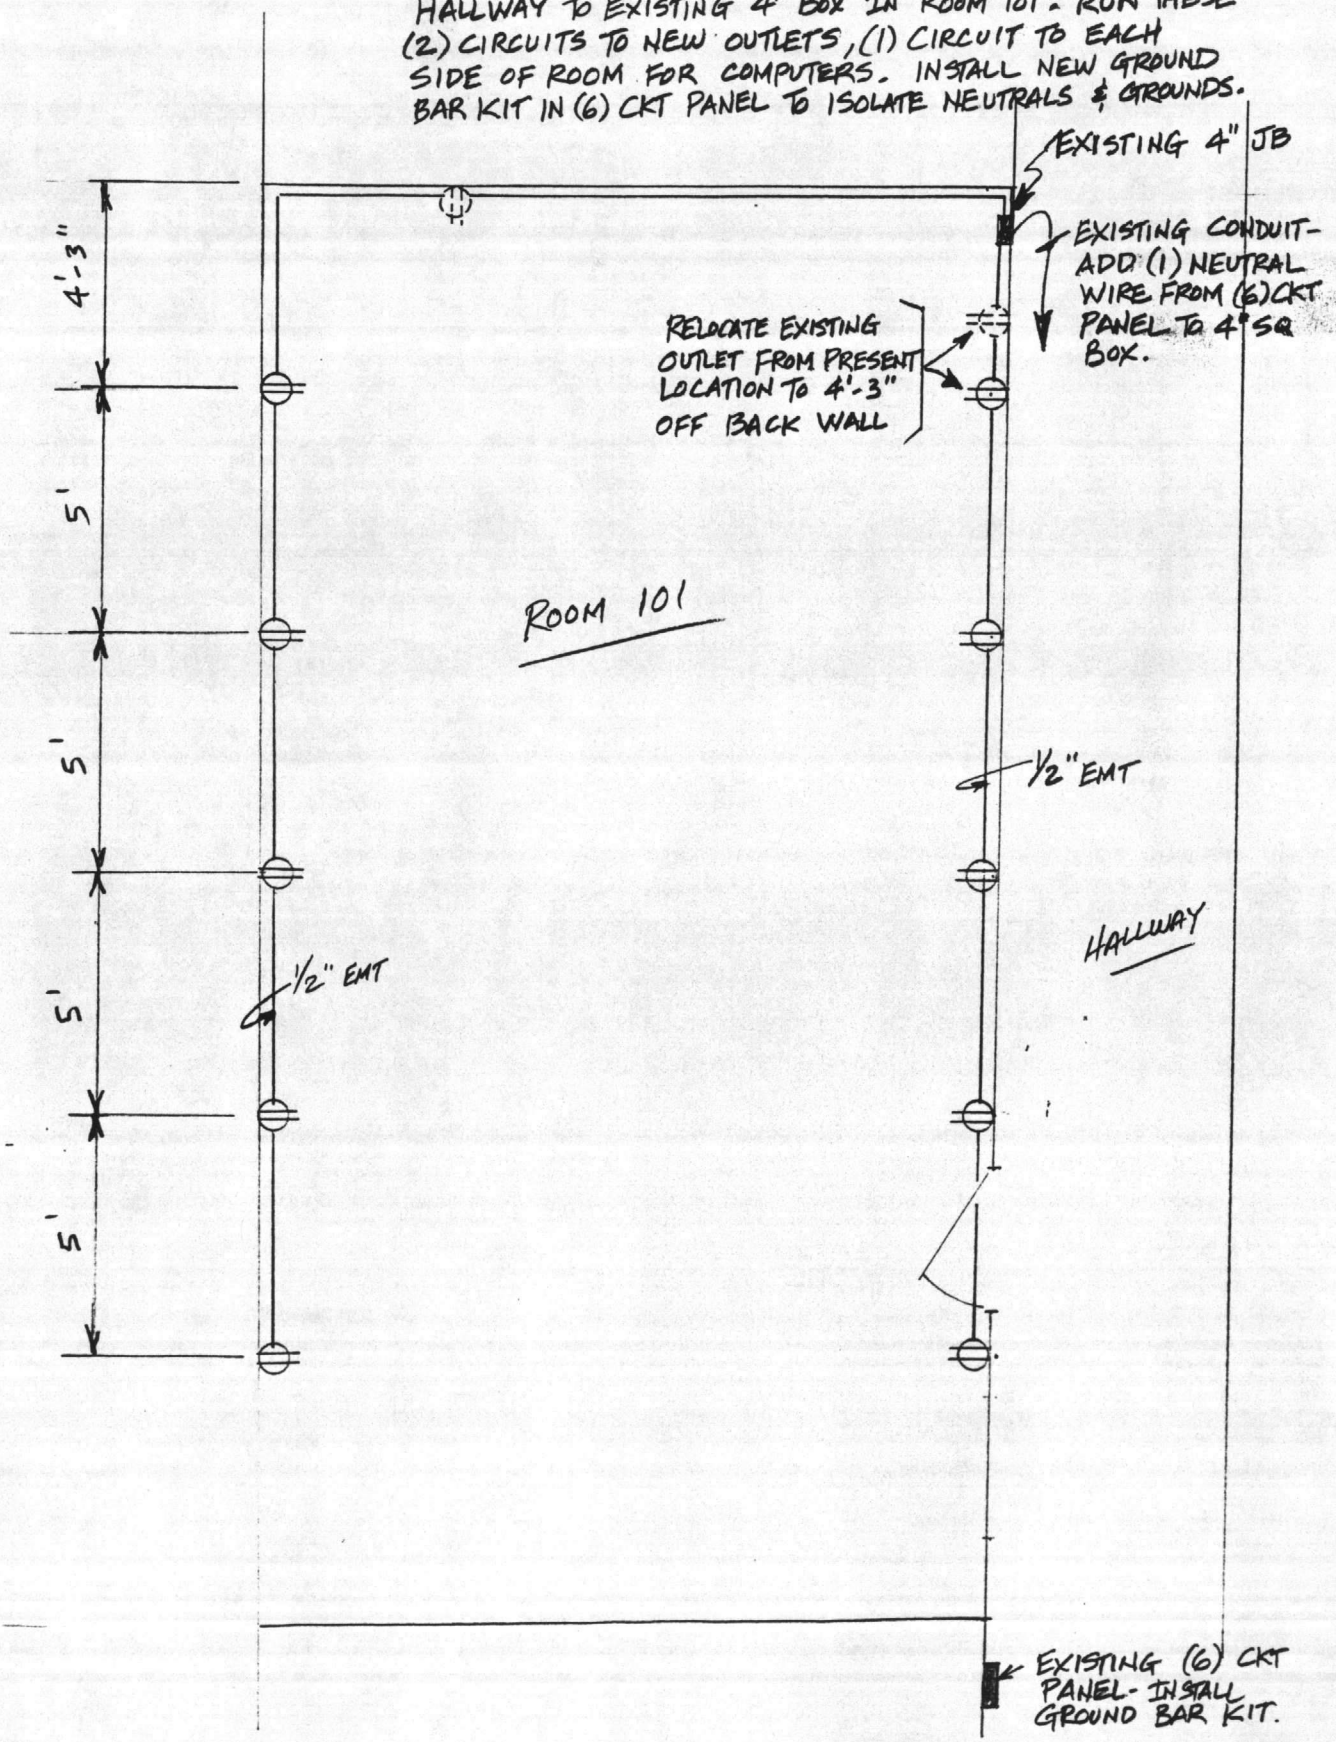 HALLWAY TO EXISTING 4" BOX IN ROOM 101. RUN THESE
(2) CIRCUITS TO NEW OUTLETS, (1) CIRCUIT TO EACH
SIDE OF ROOM FOR COMPUTERS. INSTALL NEW GROUND
BAR KIT IN (6) CKT PANEL TO ISOLATE NEUTRALS & GROUNDS.
EXISTING 4" JB
EXISTING CONDUIT-
ADD (1) NEUTRAL
WIRE FROM (6) CKT
PANEL TO 4" SQ
BOX.
4'-3"
RELOCATE EXISTING
OUTLET FROM PRESENT
LOCATION TO 4'-3"
OFF BACK WALL
5'
ROOM 101
5'
1/2" EMT
HALLWAY
1/2" EMT
5'
5'
EXISTING (6) CKT
PANEL- INSTALL
GROUND BAR KIT.